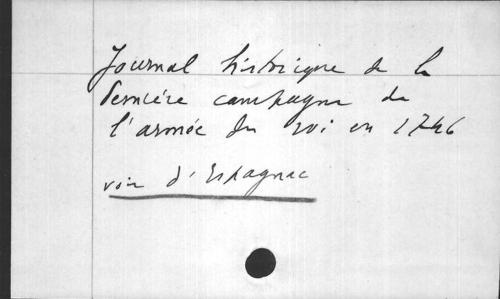 Journal historique de la
dernière campagne de
l'armée du roi en 1746
voir d'Espagnac